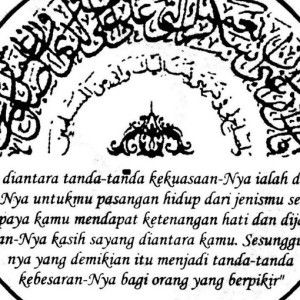 واصلح لي في ذريتي اني تبت اليك واني من المسلمين
diantara tanda-tanda kekuasaan-Nya ialah d
Nya untukmu pasangan hidup dari jenismu se
paya kamu mendapat ketenangan hati dan dija
an-Nya kasih sayang diantara kamu. Sesunggu
nya yang demikian itu menjadi tanda-tanda
kebesaran-Nya bagi orang yang berpikir"